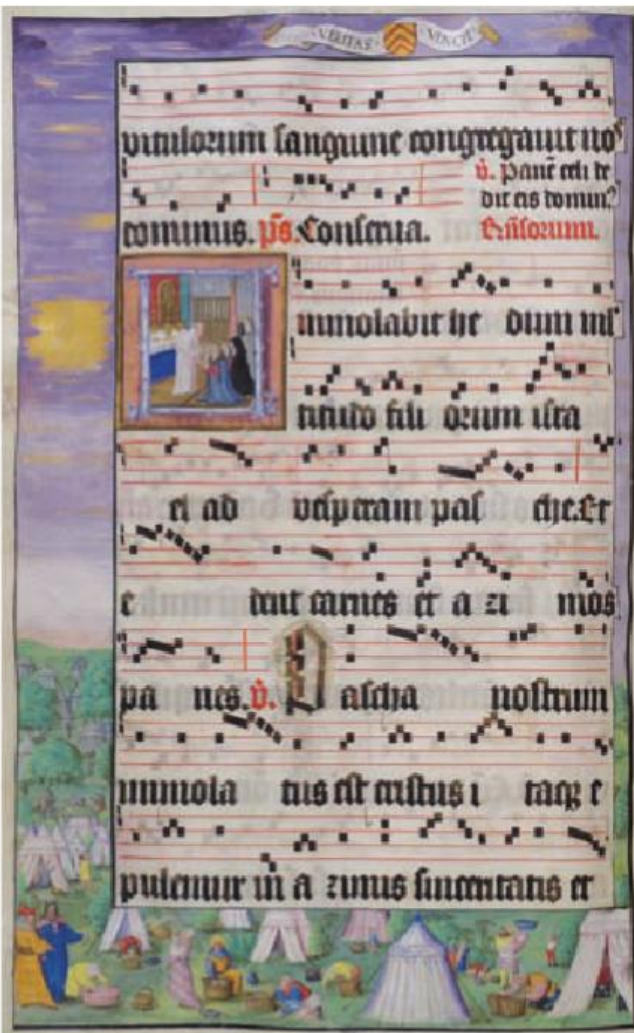 VERITAS VINCIT
vitulorum sanguine congregavit nos
dominus. ps. Conserva. v. Pane celi de
dit eis domin9
Responsorum.
Immolabit he dum ml
titudo fili orum isra
el ad vesperam pas che. Et
e dent carnes et a zi mos
pa nes. v. Pascha nostrum
immola tus est cristus i taq3 e
pulemur in a zimis sinceritatis et